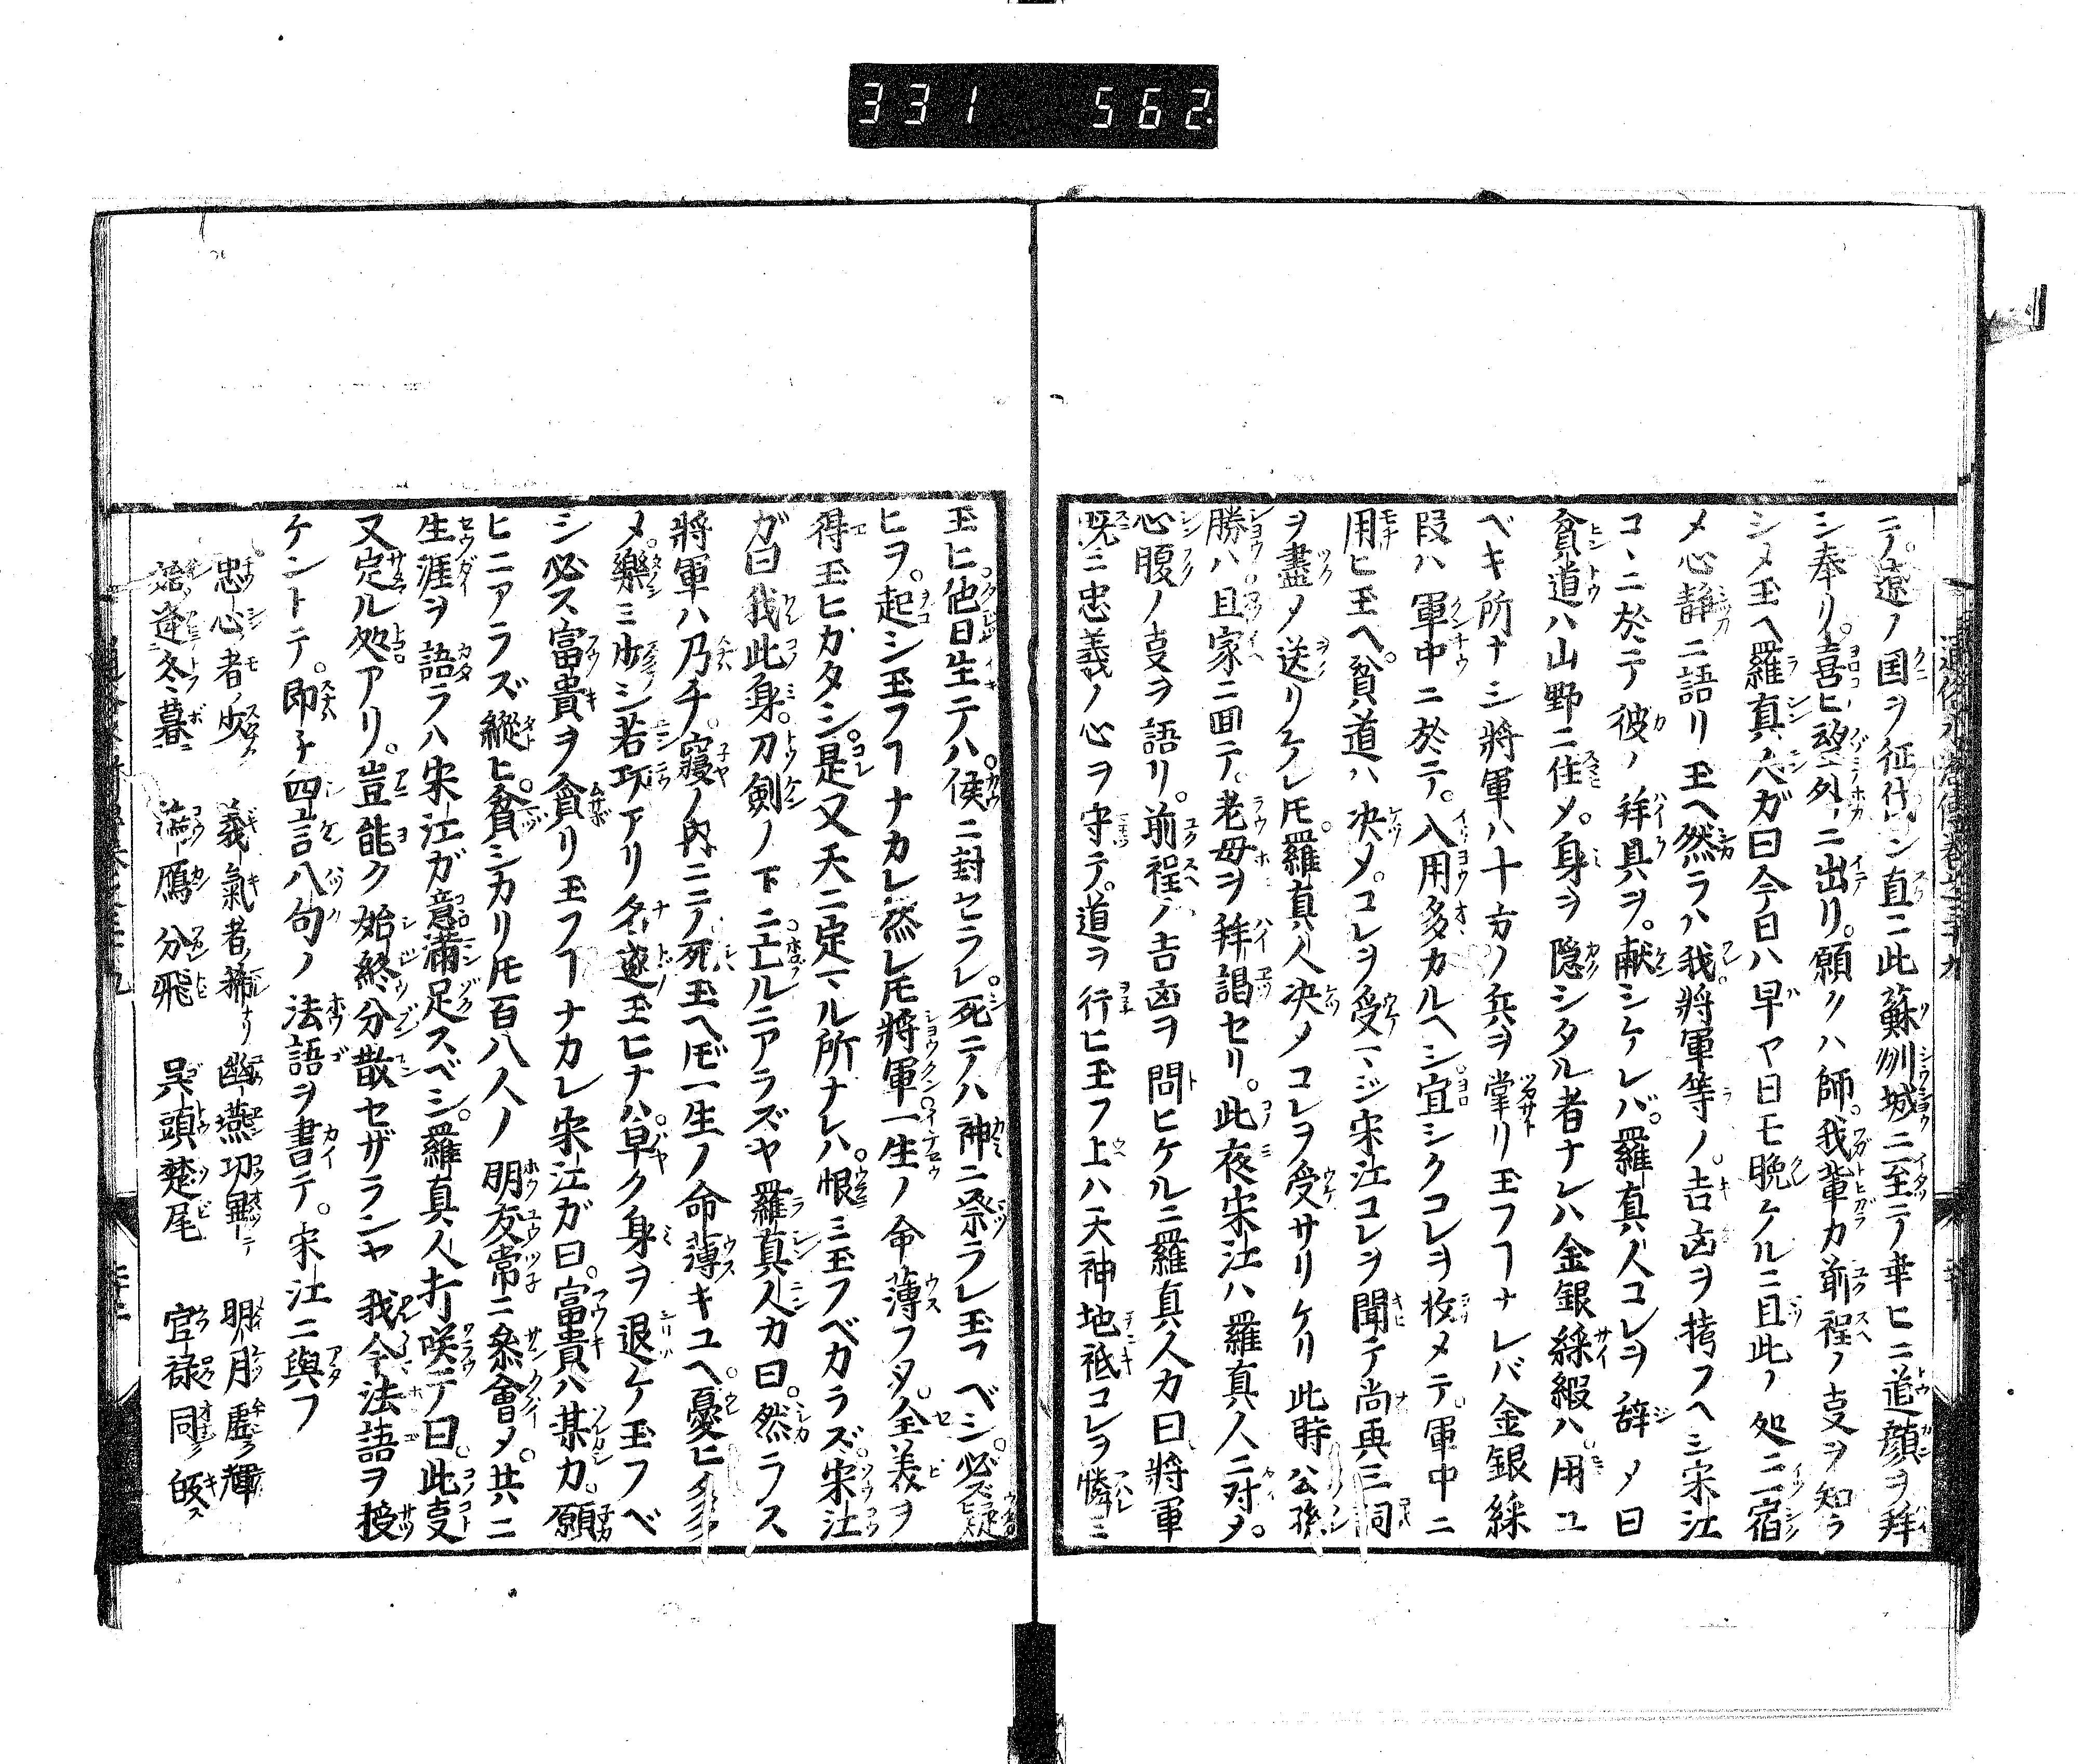 331 562
テ遼ノ国ヲ征伐シ直ニ此蘇州城ニ至テ幸ヒニ道顔ヲ拜
シ奉リ喜ヒ望外ニ出リ願クハ師我輩カ前程ノ叓ヲ知ラ
シメ玉ヘ羅真人ガ曰今日ハ早ヤ日モ晩ケルニ且此ノ処ニ宿
メ心静ニ語リ玉ヘ然ラハ我將軍等ノ吉凶ヲ拷フヘシ宋江
コヽニ於テ彼ノ拜具ヲ献シケレバ羅真人コレヲ辞メ曰
貧道ハ山野ニ住メ身ヲ隠シタル者ナレハ金銀綵緞ハ用ユ
ベキ所ナシ將軍ハ十方ノ兵ヲ掌リ玉フヿナレバ金銀綵
段ハ軍中ニ於テ入用多カルヘシ宜シクコレヲ枚メテ軍中ニ
用ヒ玉ヘ貧道ハ决メコレヲ受マジ宋江コレヲ聞テ尚再三詞
ヲ盡メ送リケレ𪜈羅真人决メコレヲ受サリケリ此時公孫
勝ハ且家ニ囬テ老母ヲ拜謁セリ此夜宋江ハ羅真人ニ对メ
心腹ノ叓ヲ語リ前程ノ吉凶ヲ問ヒケルニ羅真人カ曰將軍
既ニ忠義ノ心ヲ守テ道ヲ行ヒ玉フ上ハ天神地祇コレヲ憐ミ
玉ヒ他日生テハ侯ニ封セラレ死テハ神ニ祭ラレ玉フベシ必ズ疑
ヒヲ起シ玉フヿナカレ然レ𪜈將軍一生ノ命薄フメ全美ヲ
得玉ヒカタシ是又天ニ定マル所ナレハ恨ミ玉フベカラズ宋江
ガ曰我此身刀剣ノ下ニ亡ルニアラズヤ羅真人カ曰然ラス
將軍ハ乃チ寢ノ内ニノ死玉ヘ𪜈一生ノ命薄キユヘ憂ヒ多
メ樂ミ少シ若功アリ名遂玉ヒナハ早ク身ヲ退ケ玉フベ
シ必ス富貴ヲ貪リ玉フヿナカレ宋江ガ曰富貴ハ某カ願
ヒニアラズ縦ヒ貧シカリ𪜈百八人ノ朋友常ニ叅會メ共ニ
生涯ヲ語ラハ宋江ガ意滿足スベシ羅真人打咲テ曰此叓
又定ル処アリ豈能ク始終分散セザランヤ我今法語ヲ授
ケントテ即チ四言八句ノ法語ヲ書テ宋江ニ與フ
忠心者少 義氣者稀 幽燕功畢 明月虚輝
始逢冬暮 鴻雁分飛 呉頭楚尾 官禄同皈